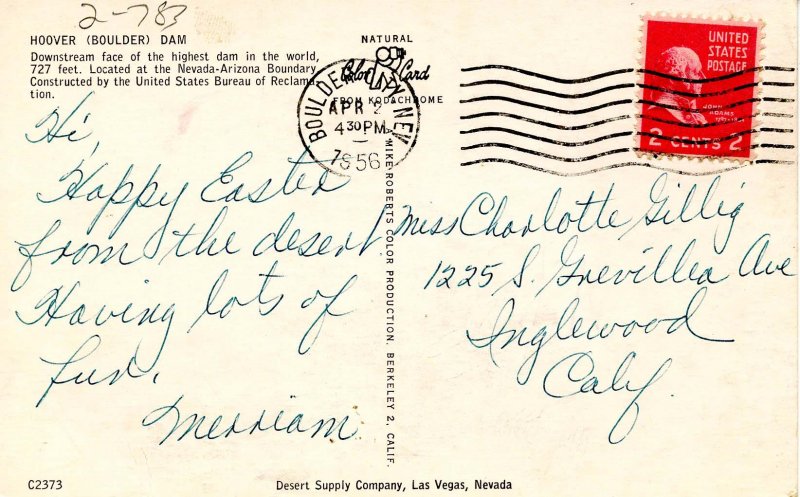 2-783
HOOVER (BOULDER) DAM
Downstream face of the highest dam in the world,
727 feet. Located at the Nevada-Arizona Boundary
Constructed by the United States Bureau of Reclama-
tion.
NATURAL
Color Card
FROM KODACHROME
BOULDER CITY NEV
APR 2
4 30 PM
1956
UNITED
STATES
POSTAGE
JOHN
ADAMS
2 CENTS 2
Hi,
Happy Easter
from the desert.
Having lots of
fun,
Merriam
MIKE ROBERTS COLOR PRODUCTION, BERKELEY 2, CALIF.
Miss Charlotte Gillig
1225 S. Grevillea Ave
Inglewood
Calif.
C2373
Desert Supply Company, Las Vegas, Nevada